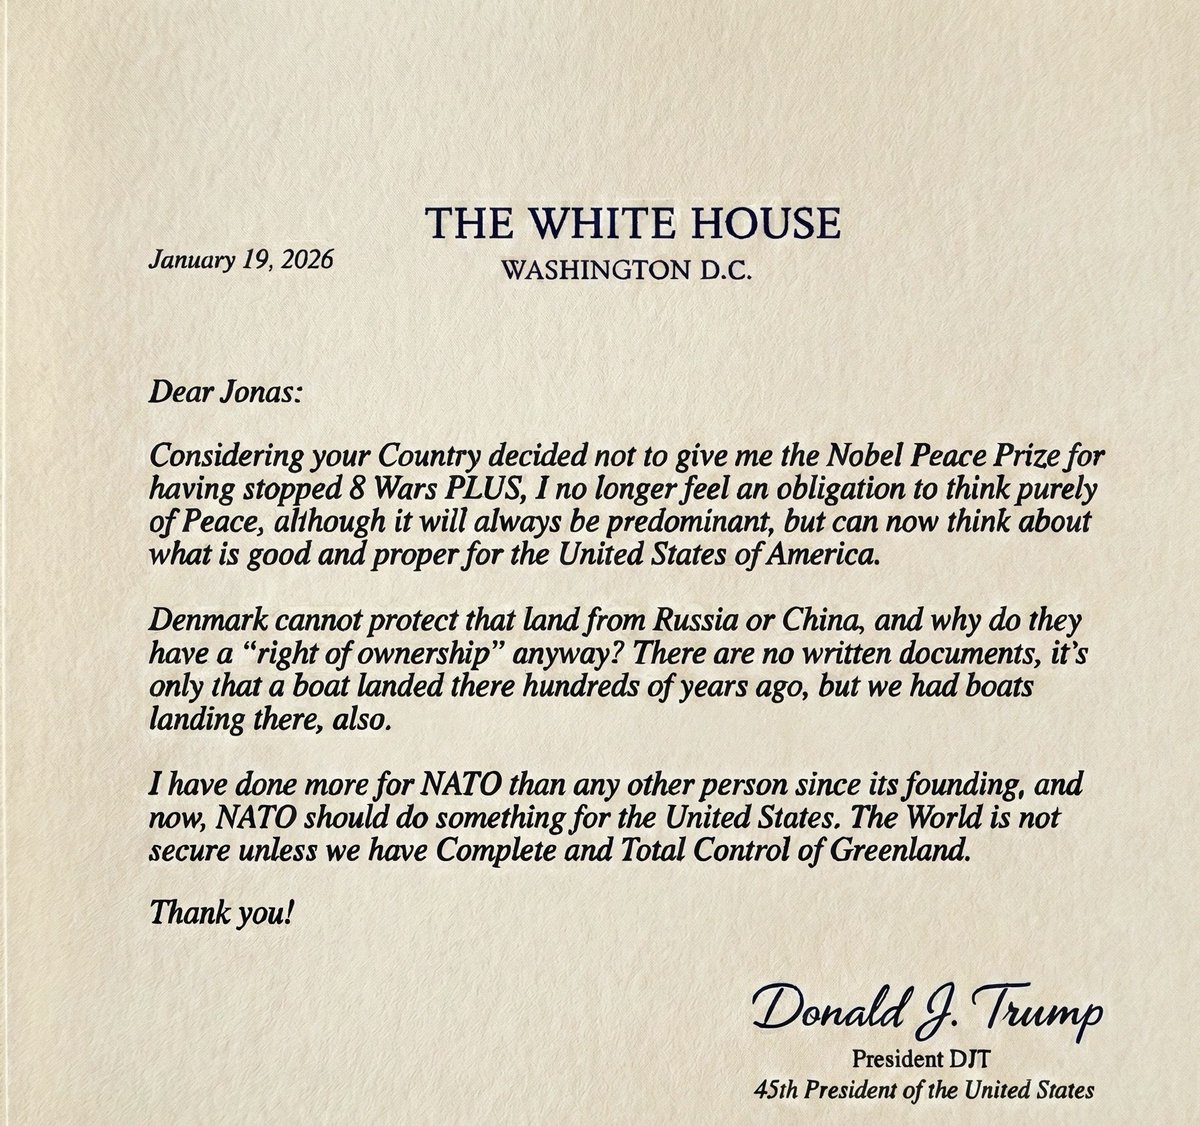 THE WHITE HOUSE
January 19, 2026
WASHINGTON D.C.
Dear Jonas:
Considering your Country decided not to give me the Nobel Peace Prize for
having stopped 8 Wars PLUS, I no longer feel an obligation to think purely
of Peace, although it will always be predominant, but can now think about
what is good and proper for the United States of America.
Denmark cannot protect that land from Russia or China, and why do they
have a “right of ownership” anyway? There are no written documents, it’s
only that a boat landed there hundreds of years ago, but we had boats
landing there, also.
I have done more for NATO than any other person since its founding, and
now, NATO should do something for the United States. The World is not
secure unless we have Complete and Total Control of Greenland.
Thank you!
Donald J. Trump
President DJT
45th President of the United States